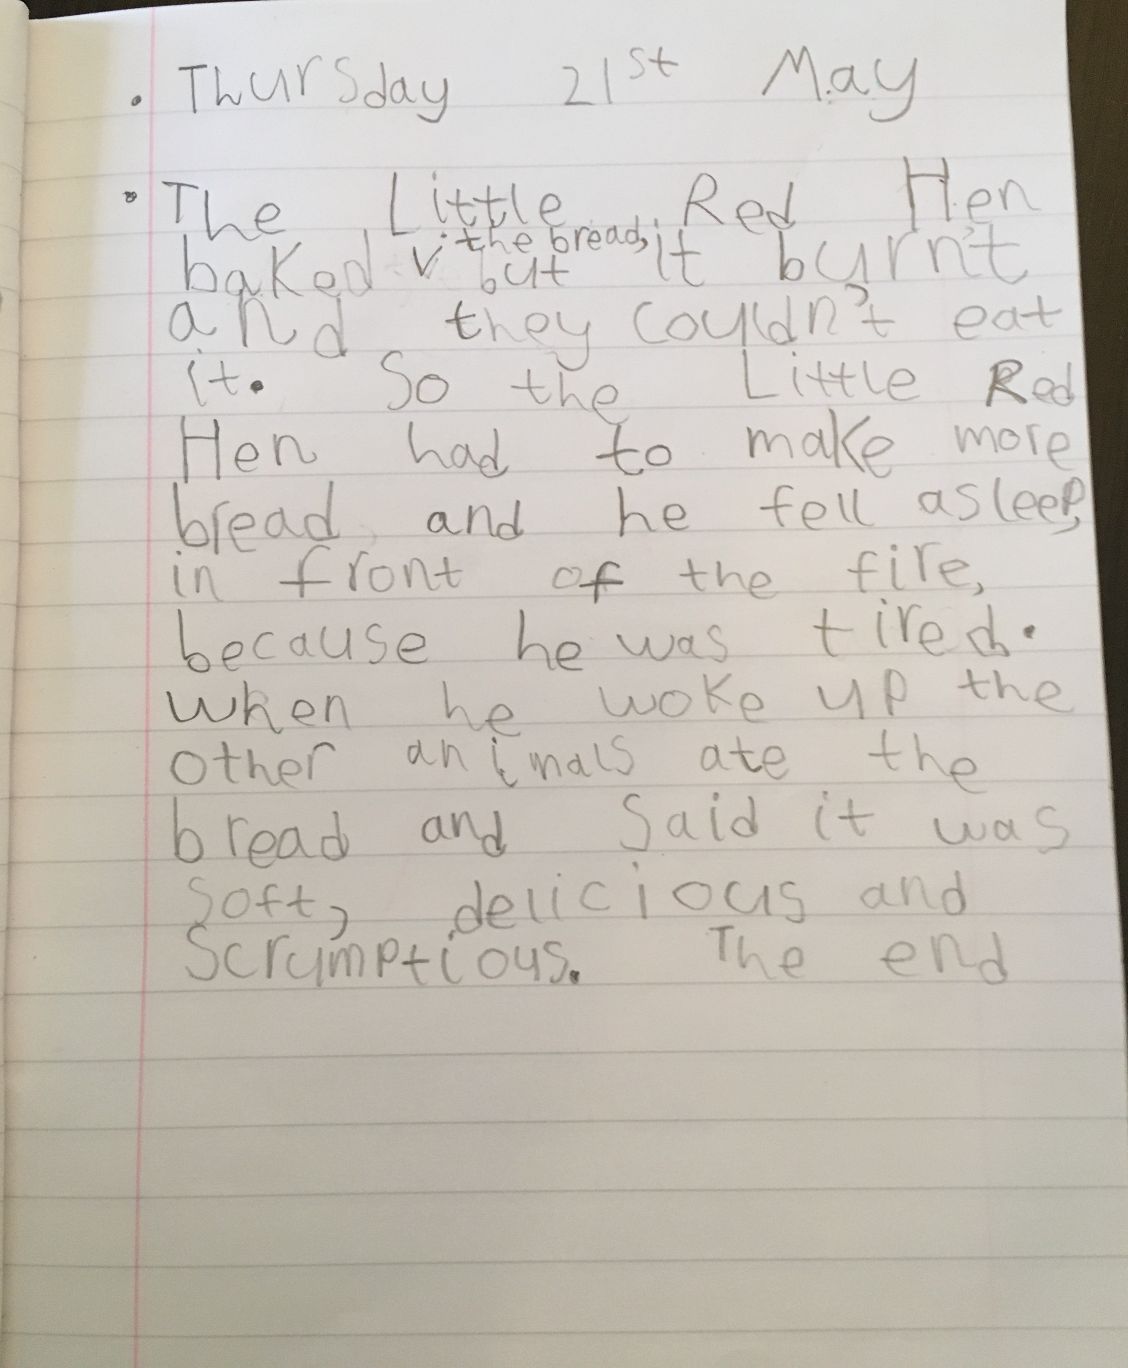 . Thursday 21st May
The Little Red Hen
baked the bread, but it burn't
and they couldn't eat
it. So the Little Red
Hen had to make more
bread and he fell asleep,
in front of the fire,
because he was tired.
when he woke up the
other animals ate the
bread and said it was
soft, delicious and
Scrumptious. The end